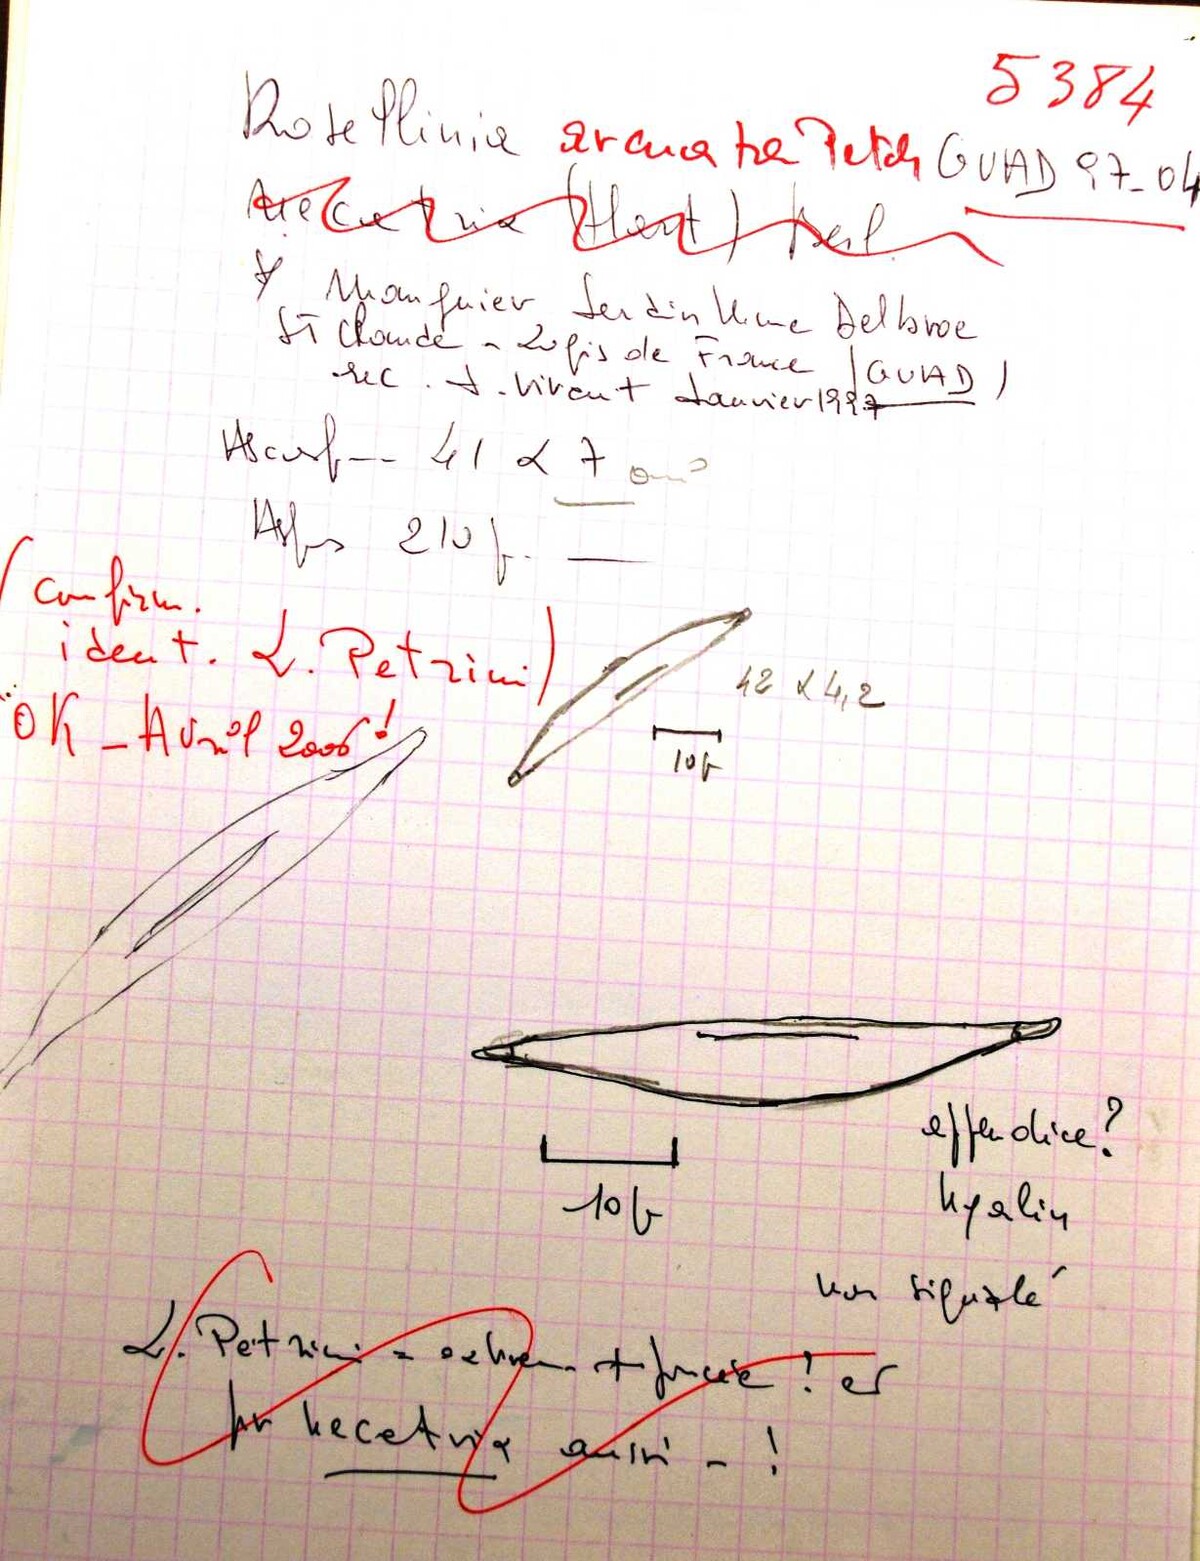 5384
Rosellinia arcuata Petch GUAD 97-04
necatrix (Hart) Berl.
Manguier Jardin Mme Delbroe
St Claude - 20 pis de France (GUAD)
rec. J. Vivant Janvier 1997
Ascosp-- 41 x 7
210 µ.
(confirm.
ident. L. Petrini)
OK - Avril 2006 !
42 x 4,2
10µ
appendice?
hyalin
10µ
non signalé
L. Petrini = extrem. + foncée ! et
pr necatrix aussi - !